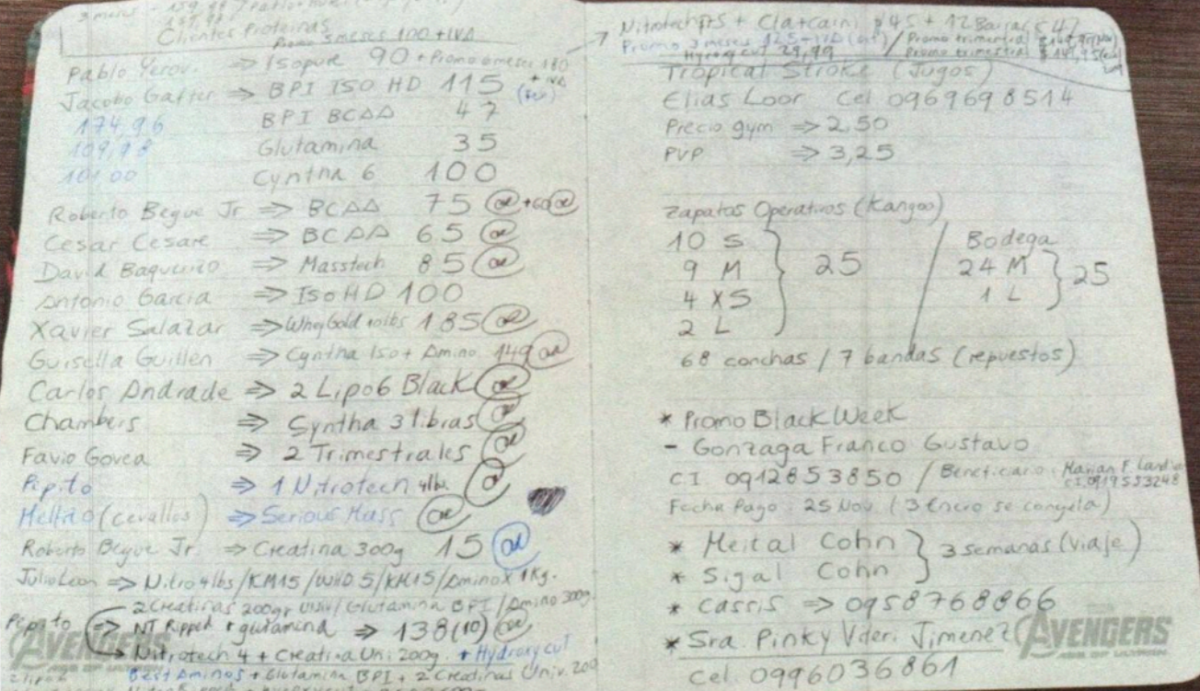 3 meses
Clientes Proteinas
Promo 3 meses 100 + IVA
Pablo Yerov. => Isopure 90 + Promo 6 meses 180
Jacobo Gatter => BPI ISO HD 115 + IVA
174,96 BPI BCAA 47
109,98 Glutamina 35
101,00 Cyntha 6 100
Roberto Begue Jr => BCAA 75 ok +60 ok
Cesar Cesare => BCAA 65 ok
David Baquerizo => Masstech 85 ok
Antonio Garcia => Iso HD 100
Xavier Salazar => Whey Gold 185 ok
Guisella Guillen => Cyntha Iso + Amino 149 ok
Carlos Andrade => 2 Lipo6 Black ok
Chambers => Syntha 3 libras ok
Favio Govea => 2 Trimestrales ok
Pipito => 1 Nitrotech 4lbs
(Cevallos) => Serious Mass ok
Roberto Begue Jr. => Creatina 300g 15 ok
Julio Leon => Nitro 4lbs/KM15/WHD5/KM15/Aminox 1Kg.
2 Creatinas 200gr Univ/Glutamina BPI/Amino 300g
Pipito => NT Ripped + glutamina => 138 (10) ok
AVENGERS
AGE OF ULTRON
-> Nitrotech 4 + Creatina Uni 200g. + Hydroxycut
Best Aminos + Glutamina BPI + 2 Creatinas Univ. 200
Promo 3 meses 125 + IVA / Promo trimestral
Hydroxycut 29,99 / Promo trimestral
Tropical Stroke (Jugos)
Elias Loor Cel 0969698514
Precio gym => 2,50
PVP => 3,25
Zapatos Operativos (Kangoo)
10 S / Bodega
9 M } 25 24 M } 25
4 XS 1 L
2 L
68 conchas / 7 bandas (repuestos)
* Promo Black Week
- Gonzaga Franco Gustavo
CI 0912853850 / Beneficiario:
CI.0919553248
Fecha Pago: 25 Nov. (3 Enero se congela)
* Meital Cohn } 3 semanas (viaje)
* Sigal Cohn
* Cassis => 0958768866
* Sra. Pinky Vderi Jimenez
AVENGERS
AGE OF ULTRON
Cel. 0996036861